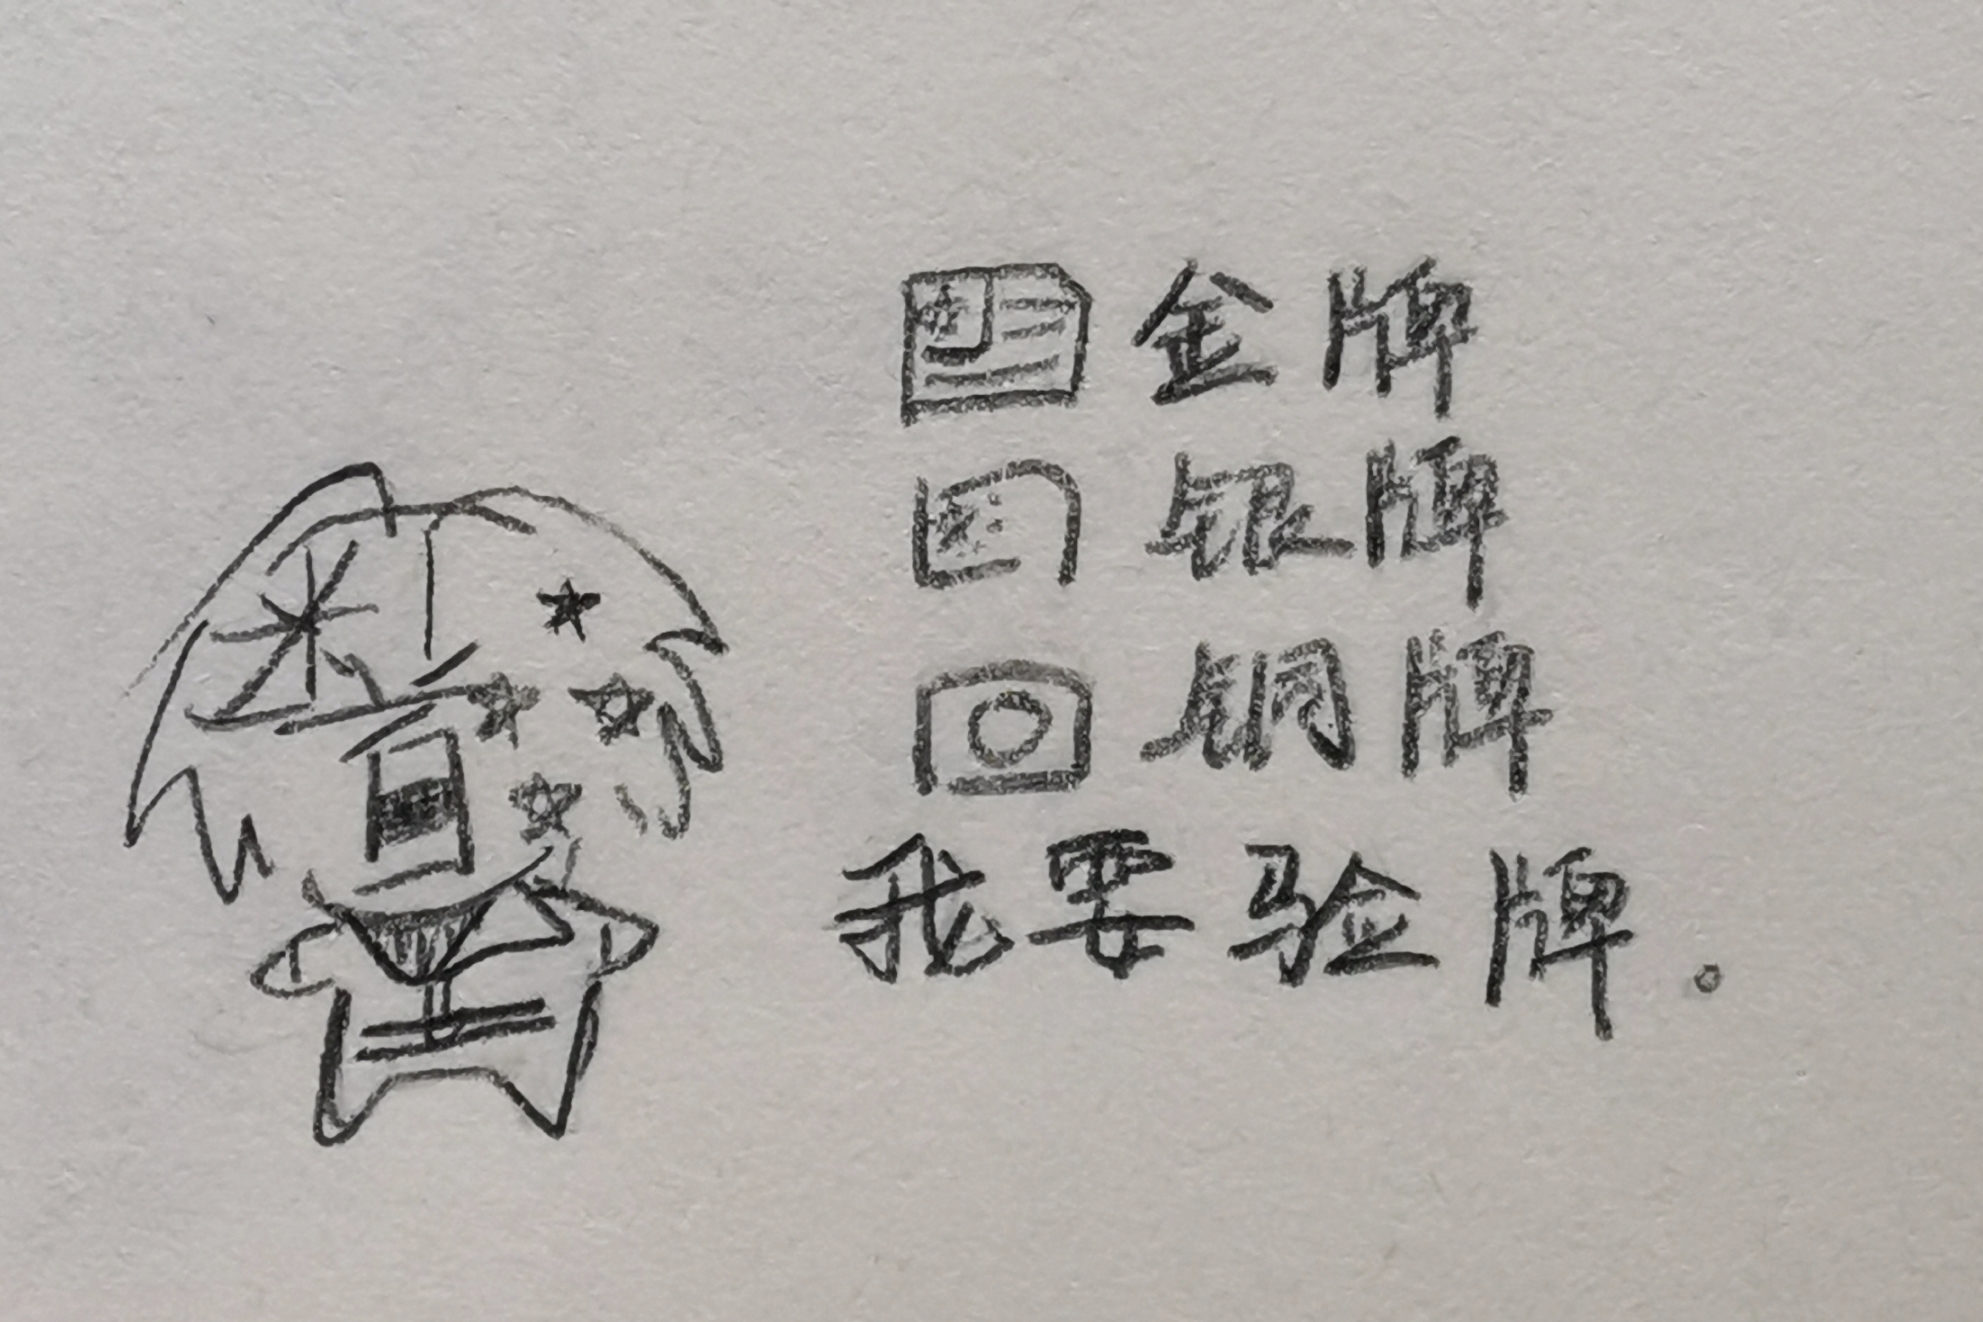 金牌
银牌
铜牌
我要验牌。